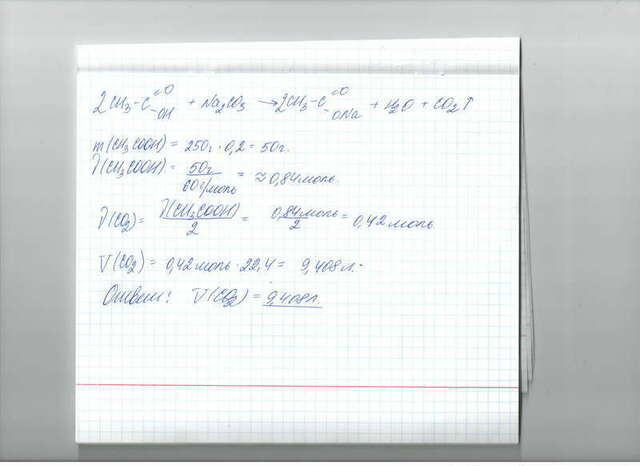 2CH₃-C=O-OH + Na₂CO₃ → 2CH₃-C=O-ONa + H₂O + CO₂↑
m(CH₃COOH) = 250г · 0,2 = 50г.
ν(CH₃COOH) = 50г/60г/моль = ≈ 0,84 моль.
ν(CO₂) = ν(CH₃COOH)/2 = 0,84 моль/2 = 0,42 моль
V(CO₂) = 0,42 моль · 22,4 = 9,408 л.
Ответ: V(CO₂) = 9,408 л.